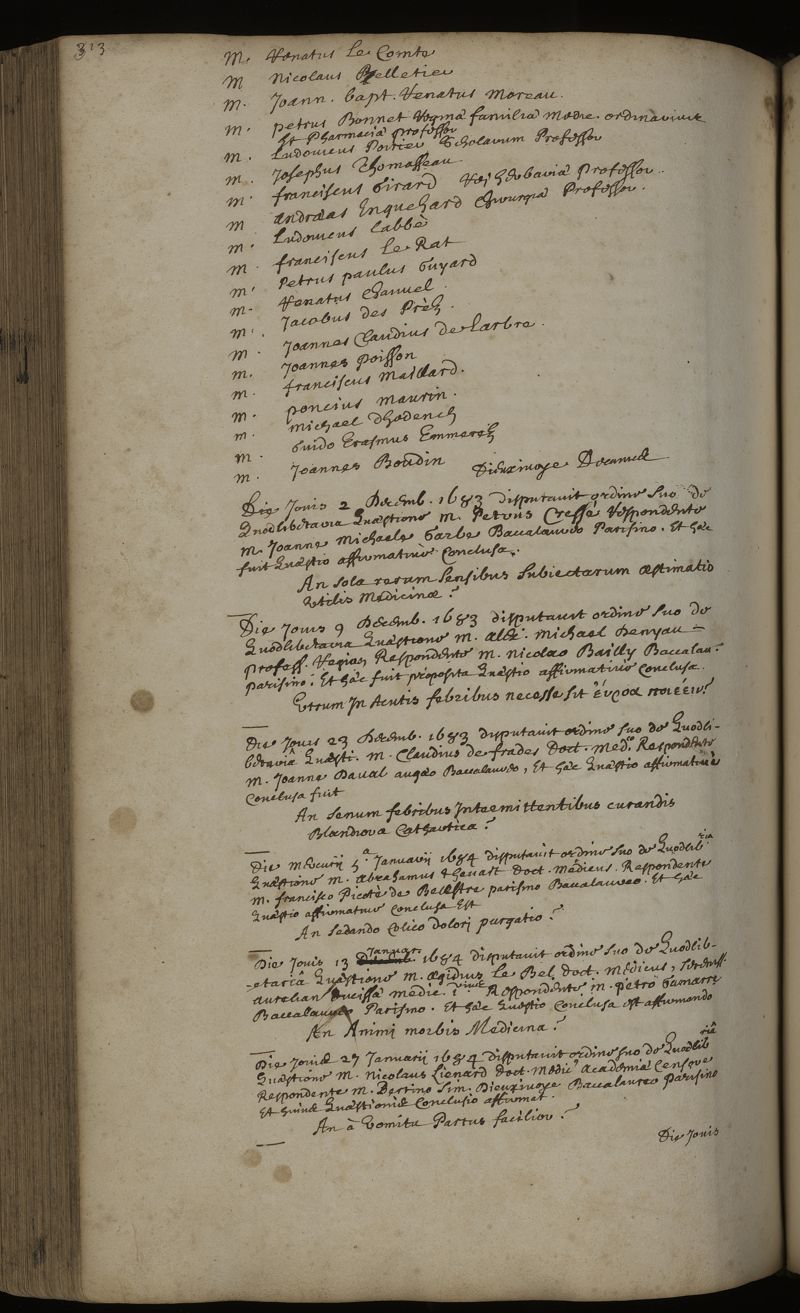 313
M. Renatus Le Comte
M Nicolaus Pelletier
M. Joann. bapt. Renatus Moreau.
M. Petrus Bonnet Regina familia Medic. ordinarius
et Pharmacia Professor
M. Ludovicus Poirier Scholarum Professor
M. Josephus Thomasseau
M. franciscus Girard Rei herbaria Professor.
M andraas Enguehard Chirurgia Professor.
M. Ludovicus Labbé
M. franciscus Le Rat
M. Petrus paulus Guyard
M. Renatus Chanvel.
M. Jacobus des Préz.
M. Joannes Claudius De Larbre.
M. Joannes Poisson
M. franciscus Maillard.
M. poncius Maurin.
M. Michael Dhodench
M. Guido Erasmus Emmerez
M. Joannes Boudin Dieuxivoye Decanus
Die Jovis 2 Decemb. 1683 disputavit ordine suo de
Quodlibetaria Quæstione M. Petrus Cressé Respondente
M. Joanne Michaele Garbe Baccalaureo Parisino. Et hæc
fuit Quæstio affirmative Conclusa.
An sola rerum sensibus subiectarum æstimatio
Utilis Medicinæ?
Die Jovis 9 Decemb. 1683 disputavit ordine suo de
Quodlibetaria Quæstione M. Alex. Michael Denyau
profess. Regius Respondente M. nicolao Bailly Baccalau.
parisino. Et hæc fuit proposita Quæstio affirmative Conclusa.
Utrum In Acutis febribus necesse sit ἔυροα ποιέειν?
Die Jovis 23 Decemb. 1683 disputavit ordine suo de Quodli-
betariâ Quæsti. M. Claudius de frades Doct. Med. Respondente
M. Joanne Daval augæo Baccalaureo, Et hæc Quæstio affirmative
Conclusa fuit
An Senum febribus Intermittentibus curandis
Blandiora Cathartica?
Die Mercurij 5a Januarij 1684 disputavit ordine suo de Quodlibria
Quæstione M. Abrahamus Thevart Doct. Medicus. Respondente
M. francisco Picoté de Belestre parisino Baccalaureo. Et hæc
Quæstio affirmative Conclusa Est
An Sedando Colico Dolori purgatio?
Die Jovis 13 Januar. 1684 disputavit ordine suo de Quodlib-
-etariâ Quæstione M. ægidius Le Bel Doct. Medicus, Sereniss.
aurelian ducissa medic. Respondente M. petro Gamarre
Baccalaureo Parisino. Et hæc Quæstio Conclusa est affirmando
An Animi morbis Medicina?
Die Jovis 27 Januarii 1684 disputavit ordine suo de Quodlibriâ
Quæstione M. Nicolaus Lienard Doct. Medic. Academia Censore
Respondente M. Bertino Sim. Dieuxivoye Baccalaureo Parisino
Et huius Quæstionis Conclusio affirmat.
An à Vomitu Partus facilior?
Die Jovis